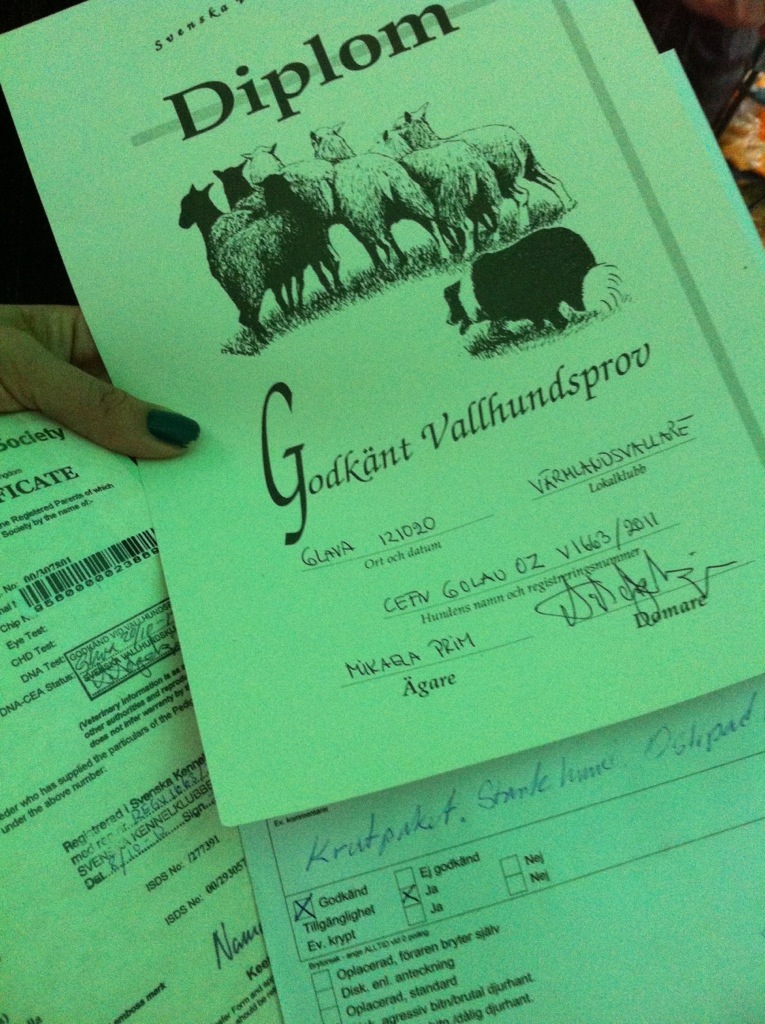 Svenska
Diplom
Godkänt Vallhundsprov
VÄRMLANDSVALLARE
Lokalklubb
GLAVA 121020
Ort och datum
CEFN GOLAU OZ V1663/2011
Hundens namn och registreringsnummer
Domare
MIKAELA PRIM
Ägare
Society
FICATE
the Registered Parents of which
Society by the name of:-
No: 00/307801
Chip
Eye Test:
CHD Test:
DNA Test:
DNA-CEA Status:
GODKÄND VID VALLHUNDS
SVENSKA VALLHUNDSKL
(Veterinary information is as
other authorities and repro
does not infer warranty by
eder who has supplied the particulars of the Pedi
under the above number:
Registrerad i Svenska Kennel
med reg nr
SVENSKA KENNELKLUBBEN
Dat. Sign.
ISDS No: /277391
ISDS No: 00/293057
emboss mark
Ev. kommentarer
Krutpaket. Stark
Godkänd Ej godkänd
Tillgänglighet Ja Nej
Ev. krypt Ja Nej
Oplacerad, föraren bryter själv
Disk. enl. anteckning
Oplacerad, standard
agressiv bitn/brutal djurhant.
/dålig djurhant.